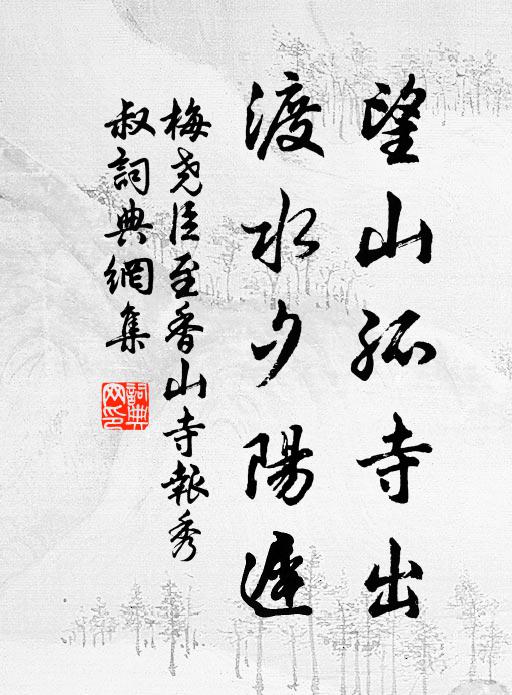 望山孤寺出
渡水夕陽遲
梅堯臣至香山寺報秀
叔詞典網集
詞典網印